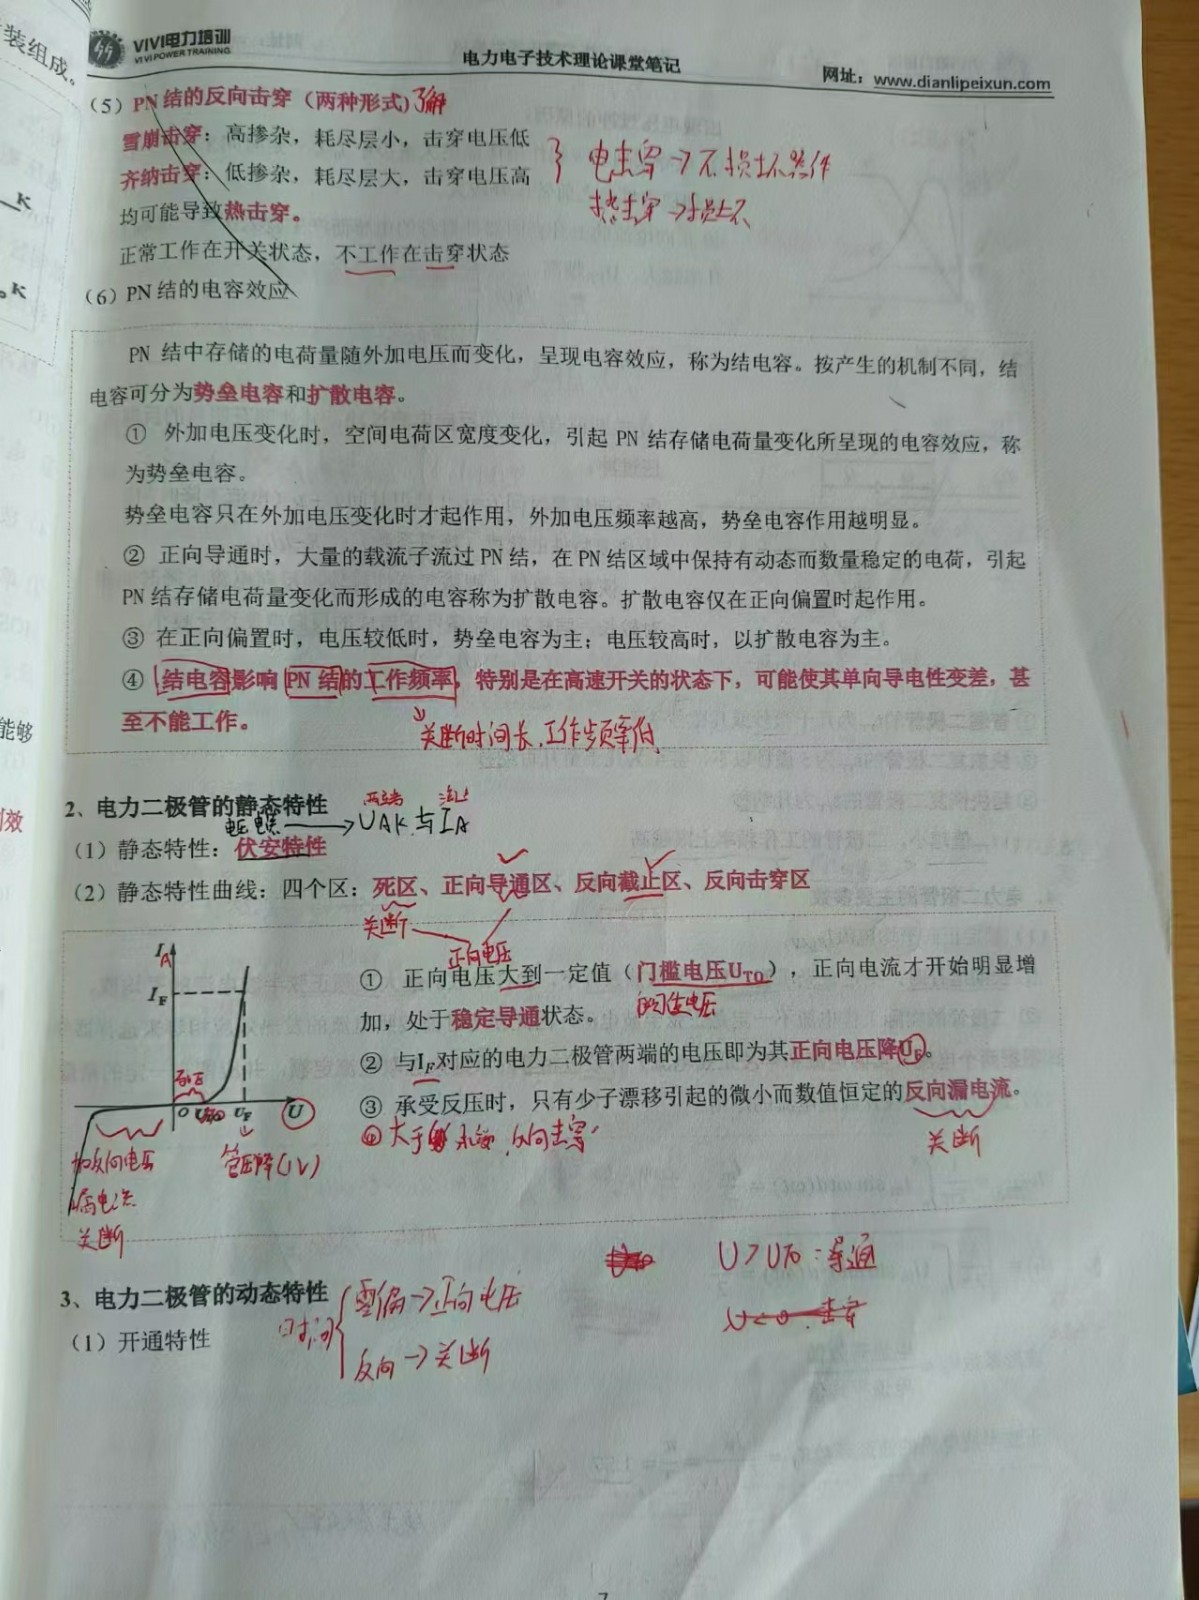 装组成。
VIVI电力培训
VIVI POWER TRAINING
电力电子技术理论课堂笔记
网址：www.dianlipeixun.com
（5）PN 结的反向击穿（两种形式）了解
雪崩击穿：高掺杂，耗尽层小，击穿电压低
齐纳击穿：低掺杂，耗尽层大，击穿电压高
电击穿→不损坏器件
热击穿→损坏
均可能导致热击穿。
正常工作在开关状态，不工作在击穿状态
K
K
（6）PN 结的电容效应
PN 结中存储的电荷量随外加电压而变化，呈现电容效应，称为结电容。按产生的机制不同，结
电容可分为势垒电容和扩散电容。
① 外加电压变化时，空间电荷区宽度变化，引起 PN 结存储电荷量变化所呈现的电容效应，称
为势垒电容。
势垒电容只在外加电压变化时才起作用，外加电压频率越高，势垒电容作用越明显。
② 正向导通时，大量的载流子流过 PN 结，在 PN 结区域中保持有动态而数量稳定的电荷，引起
PN 结存储电荷量变化而形成的电容称为扩散电容。扩散电容仅在正向偏置时起作用。
③ 在正向偏置时，电压较低时，势垒电容为主；电压较高时，以扩散电容为主。
④ 结电容影响 PN 结的工作频率，特别是在高速开关的状态下，可能使其单向导电性变差，甚
至不能工作。
关断时间长，工作频率低
能够
效
2、电力二极管的静态特性
电压电流 → UAK与IA
（1）静态特性：伏安特性
（2）静态特性曲线：四个区：死区、正向导通区、反向截止区、反向击穿区
关断
正向电压
I
A
I_F
死区
O U_TO U_F U
管压降(1V)
加反向电压
漏电流
关断
① 正向电压大到一定值（门槛电压U_TO），正向电流才开始明显增
加，处于稳定导通状态。
② 与I_F对应的电力二极管两端的电压即为其正向电压降U_F。
③ 承受反压时，只有少子漂移引起的微小而数值恒定的反向漏电流。
反向击穿
关断
U>UTO：导通
3、电力二极管的动态特性
时间
零偏→正向电压
反向→关断
（1）开通特性
7